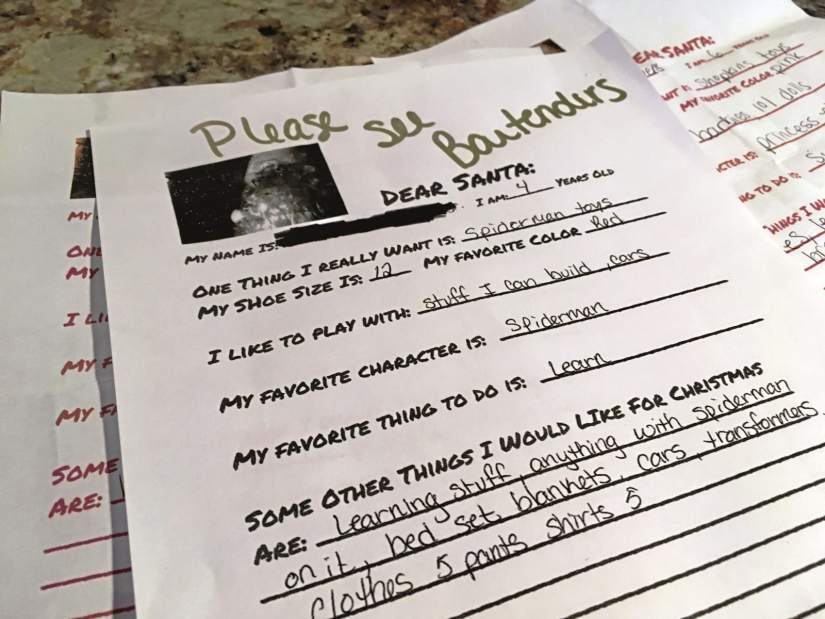 Please see Bartenders
DEAR SANTA:
I AM: 4 YEARS OLD
MY NAME IS:
ONE THING I REALLY WANT IS: Spiderman toys
MY SHOE SIZE IS: 12 MY FAVORITE COLOR Red
I LIKE TO PLAY WITH: Stuff I can build, cars
MY FAVORITE CHARACTER IS: Spiderman
MY FAVORITE THING TO DO IS: Learn
SOME OTHER THINGS I WOULD LIKE FOR CHRISTMAS
ARE: Learning stuff, anything with spiderman
on it, bed set, blankets, cars, transformers
clothes 5 pants shirts 5
MY
MY
I LI
MY F
MY F
SOME
ARE:
SANTA:
Shopkins toys
MY FAVORITE COLOR pink
lol dolls
princess
TO DO
THINGS I W